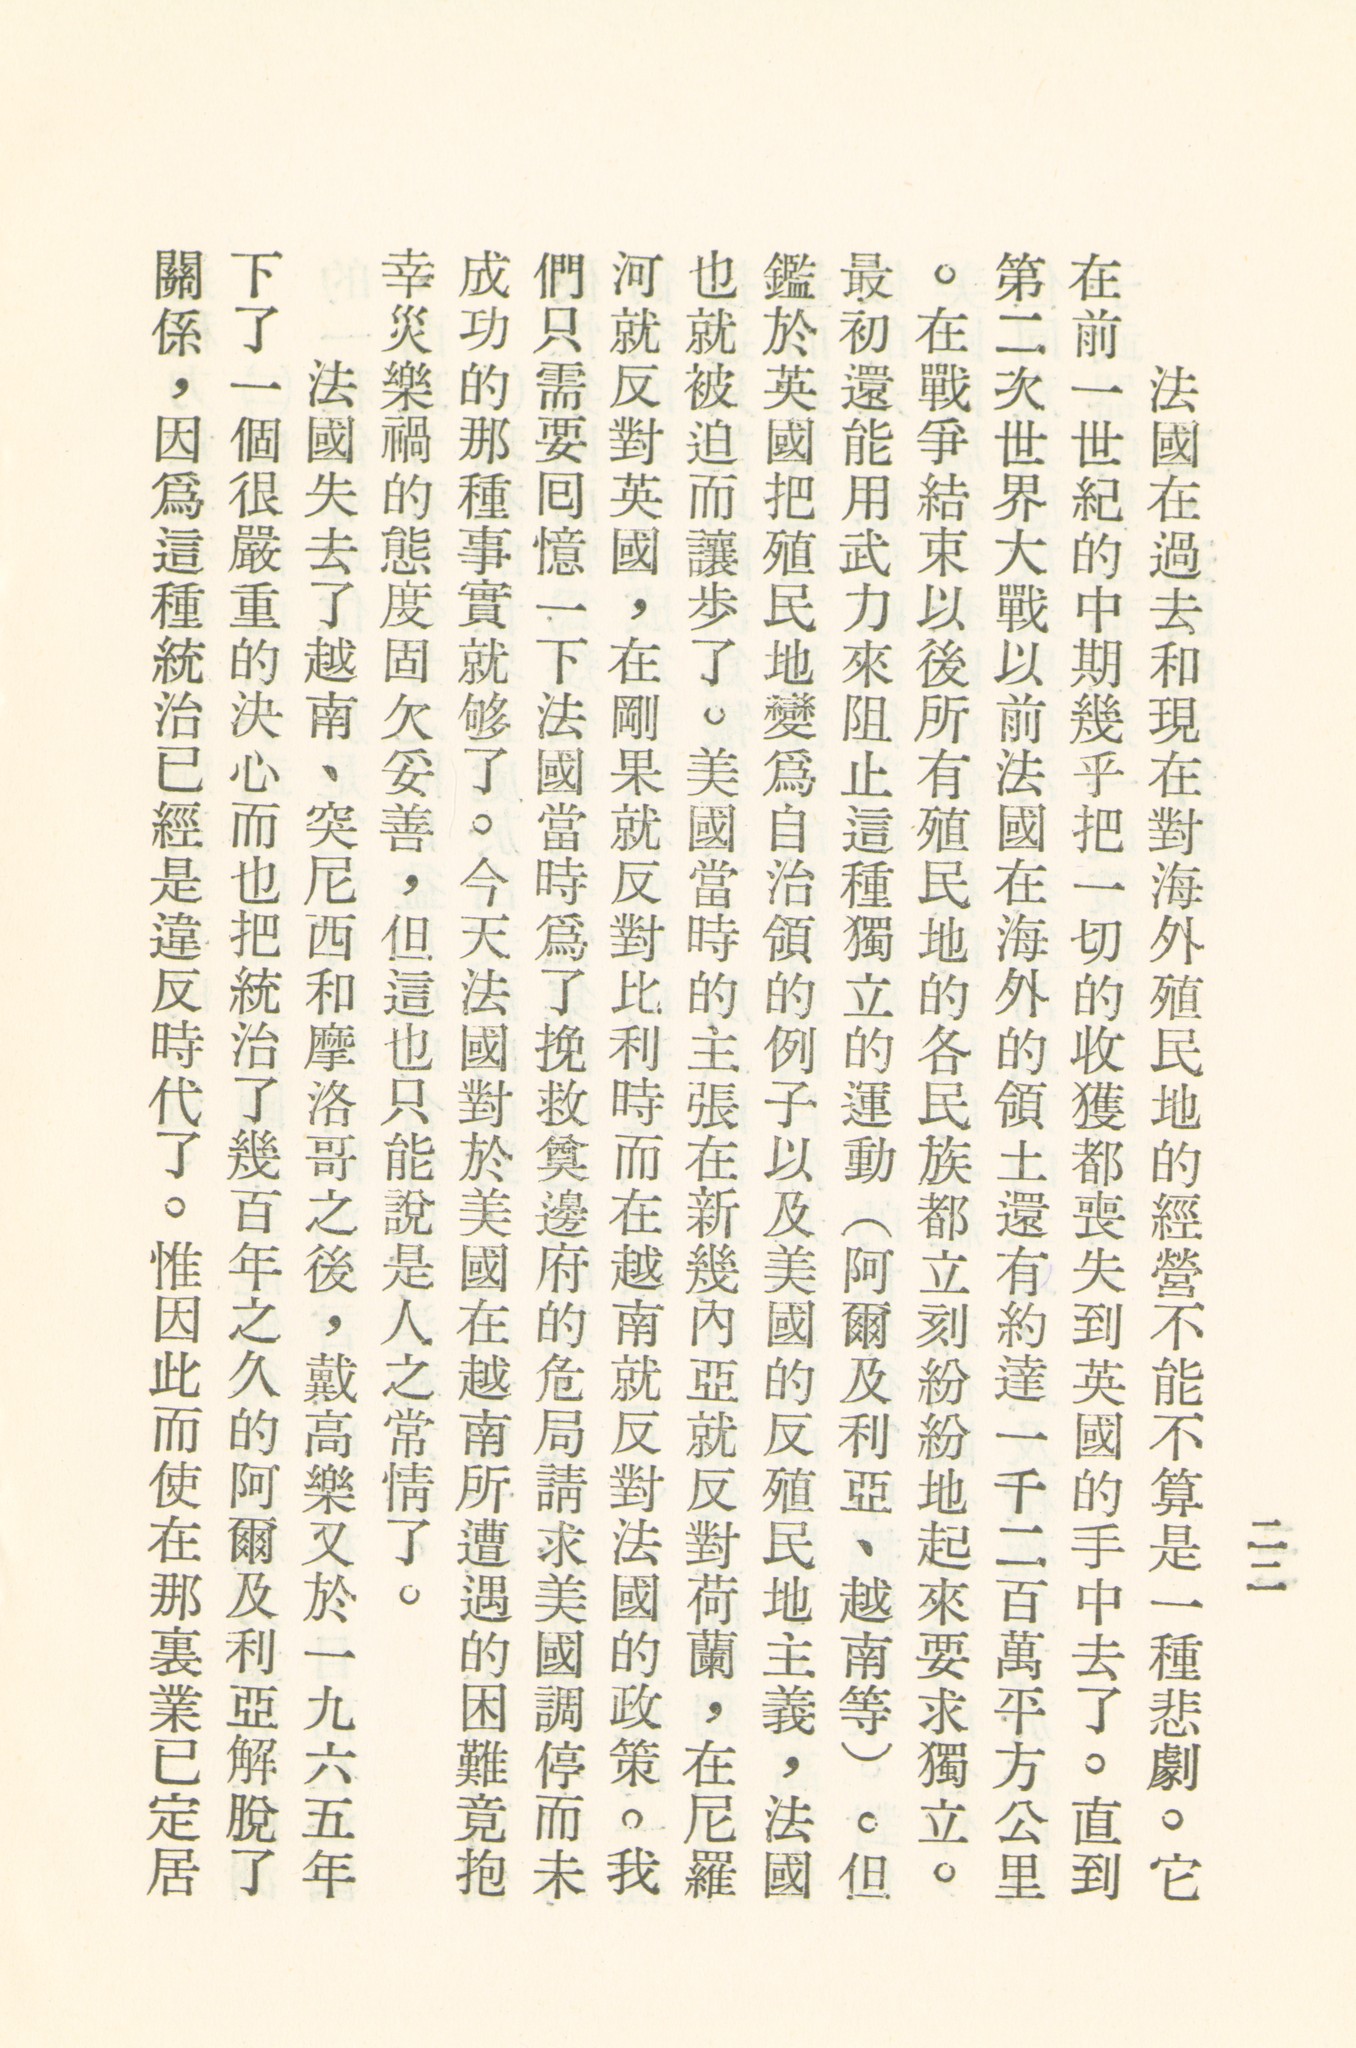 二二
法國在過去和現在對海外殖民地的經營不能不算是一種悲劇。它
在前一世紀的中期幾乎把一切的收獲都喪失到英國的手中去了。直到
第二次世界大戰以前法國在海外的領土還有約達一千二百萬平方公里
。在戰爭結束以後所有殖民地的各民族都立刻紛紛地起來要求獨立。
最初還能用武力來阻止這種獨立的運動（阿爾及利亞、越南等）。但
鑑於英國把殖民地變爲自治領的例子以及美國的反殖民地主義，法國
也就被迫而讓步了。美國當時的主張在新幾內亞就反對荷蘭，在尼羅
河就反對英國，在剛果就反對比利時而在越南就反對法國的政策。我
們只需要回憶一下法國當時爲了挽救奠邊府的危局請求美國調停而未
成功的那種事實就够了。今天法國對於美國在越南所遭遇的困難竟抱
幸災樂禍的態度固欠妥善，但這也只能說是人之常情了。
法國失去了越南、突尼西和摩洛哥之後，戴高樂又於一九六五年
下了一個很嚴重的決心而也把統治了幾百年之久的阿爾及利亞解脫了
關係，因爲這種統治已經是違反時代了。惟因此而使在那裏業已定居